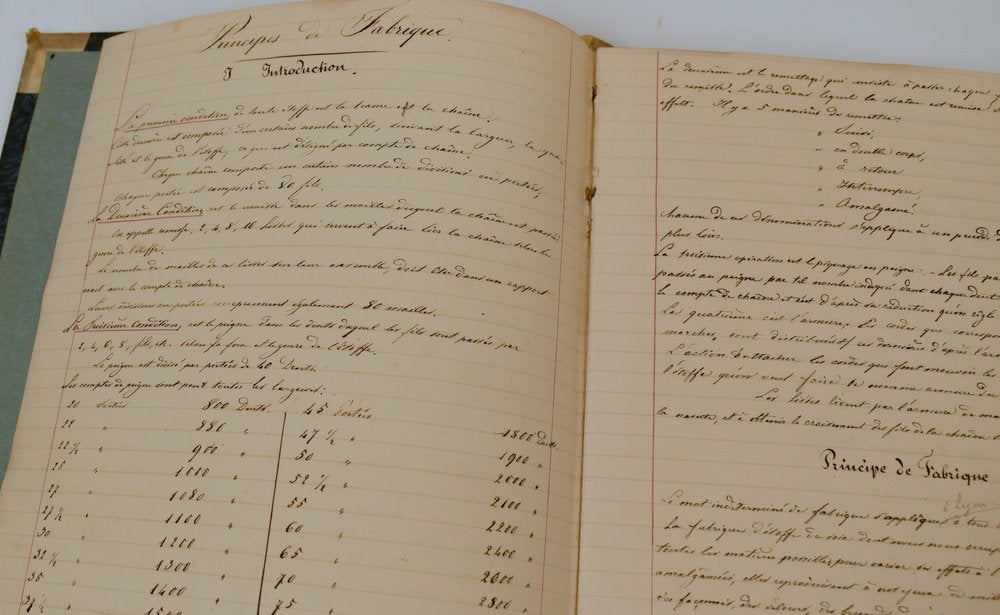 Principes de Fabrique.
I Introduction.
La première condition de toute étoffe est la trame et la chaîne.
Cette dernière est composée d'un certain nombre de fils, suivant la largeur, la qua-
lité et le genre de l'étoffe, ce qui est désigné par compte de chaîne.
Chaque chaîne comporte un certain nombre de divisions ou portées,
Chaque portée est composée de 80 fils.
La Deuxième Condition, est le remisse dans les mailles duquel la chaîne est passée
On appelle remisse, 2, 4, 8, 16 lisses qui servent à faire lier la chaîne selon le
genre de l'étoffe.
Le nombre de mailles de ces lisses sur leur ensemble, doit être dans un rapport
avec le compte de chaîne.
Leurs divisions ou portées comprennent également 80 mailles.
La troisième Condition, est le peigne dans les dents duquel les fils sont passés par
2, 4, 6, 8, fils, etc. selon la force et le genre de l'étoffe.
Le peigne est divisé par portées de 40 Dents.
Les comptes de peigne sont pour toutes les largeurs:
20 Portées 800 Dents.
22 " 880 "
22 ½ " 900 "
25 " 1000 "
27 " 1080 "
27 ½ " 1100 "
30 " 1200 "
32 ½ " 1300 "
35 " 1400 "
37 ½ " 1500
45 Portées 1800 Dents
47 ½ " 1900 "
50 " 2000 "
52 ½ " 2100 "
55 2200 "
60 2400 "
65 2600 "
70 2800 "
75
La deuxième est le remettage qui consiste à passer chaque
du remisse. L'ordre dans lequel la chaîne est remise
effets. Il y a 5 manières de remettre:
" Suivi,
" en double corps,
" à retour
" Interrompu,
" Amalgamé.
chacune de ces dénominations s'applique à un procédé
plus loin.
La troisième opération est le piquage en peigne. - Les fils
passés au peigne par tel nombre indiqué dans chaque dent
le compte de chaîne et c'est d'après sa réduction qu'on règle
La quatrième est l'armure, les cordes qui correspon
marches, sont distribuées à ces dernières d'après l'arm
L'action d'attacher les cordes qui font mouvoir les
l'étoffe qu'on veut faire se nomme armure du
Les lisses lèvent par l'armure de
la navette, et à obtenir le croisement des fils de la chaîne
Principe de Fabrique
à Lyon
Le mot indéterminé de fabrique s'applique à tous
La fabrique d'étoffe de soie dont nous nous occup
toutes les matières possibles pour varier ses effets à l'
amalgamées, elles reproduisent à nos yeux de mill
des façonnés, des velours, des